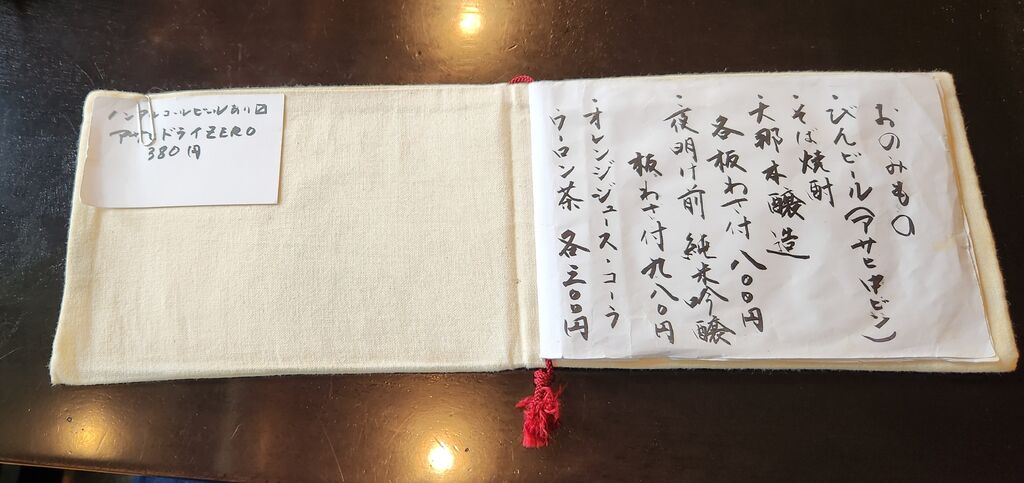 おのみもの
・びんビール(アサヒ中ビン)
・そば焼酎
・大那 本醸造
各板わさ付 八〇〇円
・夜明け前 純米吟醸
板わさ付 九八〇円
・オレンジジュース・コーラ
・ウーロン茶 各三〇〇円
ノンアルコールビールあり〼
アサヒドライZERO
380円